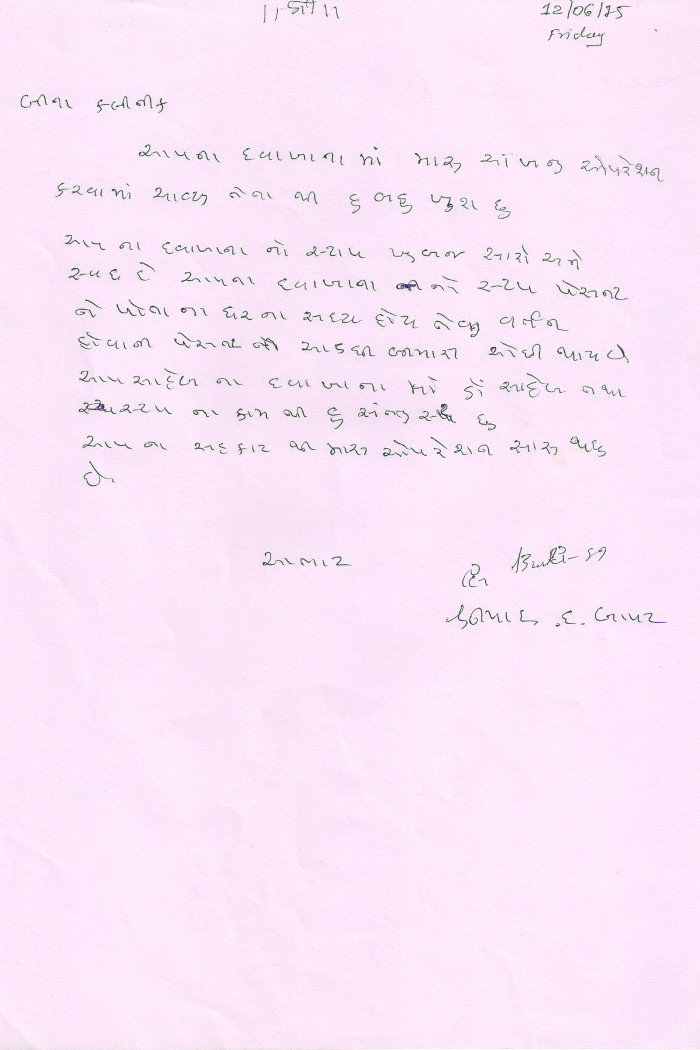 ।। શ્રી ।।
12/06/15
Friday
આપના દવાખાના માં મારૂ આંખનુ ઓપરેશન
કરવામાં આવ્યુ તેના થી હુ બહુ ખુશ છુ
આપ ના દવાખાના નો સ્ટાફ ખુબજ સારો અને
આપના દવાખાના નો સ્ટાફ પેશન્ટ
ને પોતા ના ઘરના સદસ્ય હોય તેવુ વર્તન
હોવાથી પેશન્ટ ની અડધી બીમારી ઓછી થાય છે
આપ સાહેબ ના દવાખાના માં ડૉ સાહેબ તથા
સ્ટાફ ના કામ થી હુ છુ
આપ ના સહકાર થી મારૂ ઓપરેશન સારૂ થયુ
છે.
આભાર